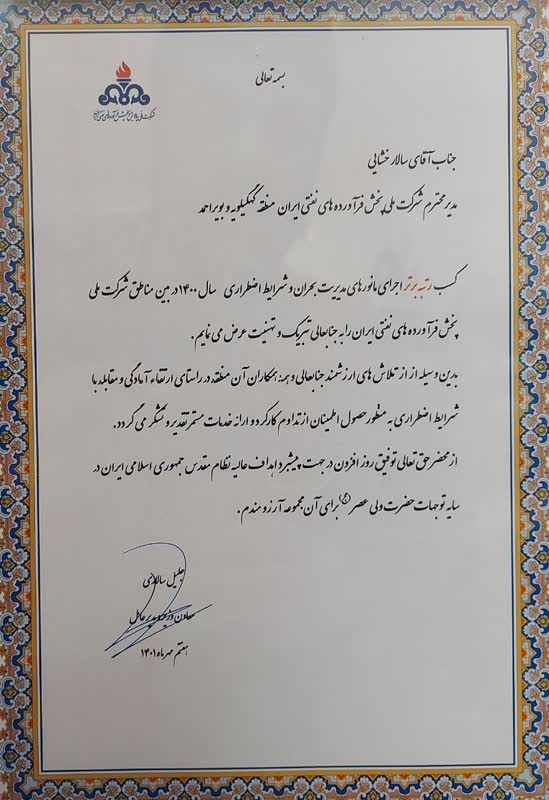 بسمه تعالی
شرکت ملی پالایش و پخش فرآورده های نفتی ایران
جناب آقای سالار خشایی
مدیر محترم شرکت ملی پخش فرآورده های نفتی ایران منطقه کهگیلویه و بویراحمد
کسب رتبه برتر اجرای مانورهای مدیریت بحران و شرایط اضطراری سال ۱۴۰۰ در بین مناطق شرکت ملی
پخش فرآورده های نفتی ایران را به جنابعالی تبریک و تهنیت عرض می نمایم.
بدین وسیله از از تلاش های ارزشمند جنابعالی و همه همکاران آن منطقه در راستای ارتقاء آمادگی و مقابله با
شرایط اضطراری به منظور حصول اطمینان از تداوم کارکرد و ارائه خدمات مستمر تقدیر و تشکر می گردد.
از محضر حق تعالی توفیق روز افزون در جهت پیشبرد اهداف عالیه نظام مقدس جمهوری اسلامی ایران در
سایه توجهات حضرت ولی عصر (عج) برای آن مجموعه آرزومندم.
جلیل سالاری
معاون وزیر و مدیرعامل
هفتم مهرماه ۱۴۰۱